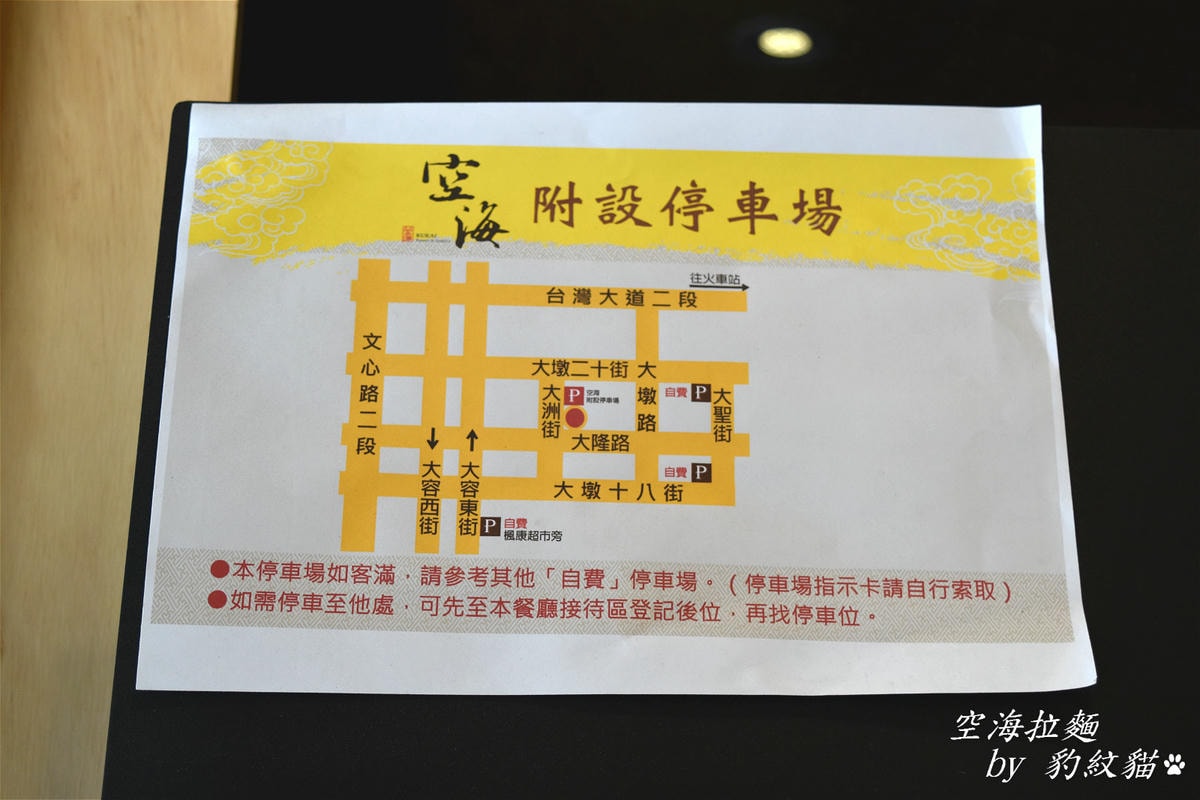 空海
KUKAI
附設停車場
往火車站
台灣大道二段
文心路二段
大墩二十街
大墩路
大洲街
P
空海
附設停車場
自費
P
大聖街
大隆路
大容西街
大容東街
自費
P
大墩十八街
P
自費
楓康超市旁
●本停車場如客滿,請參考其他「自費」停車場。(停車場指示卡請自行索取)
●如需停車至他處,可先至本餐廳接待區登記後位,再找停車位。
空海拉麵
by 豹紋貓